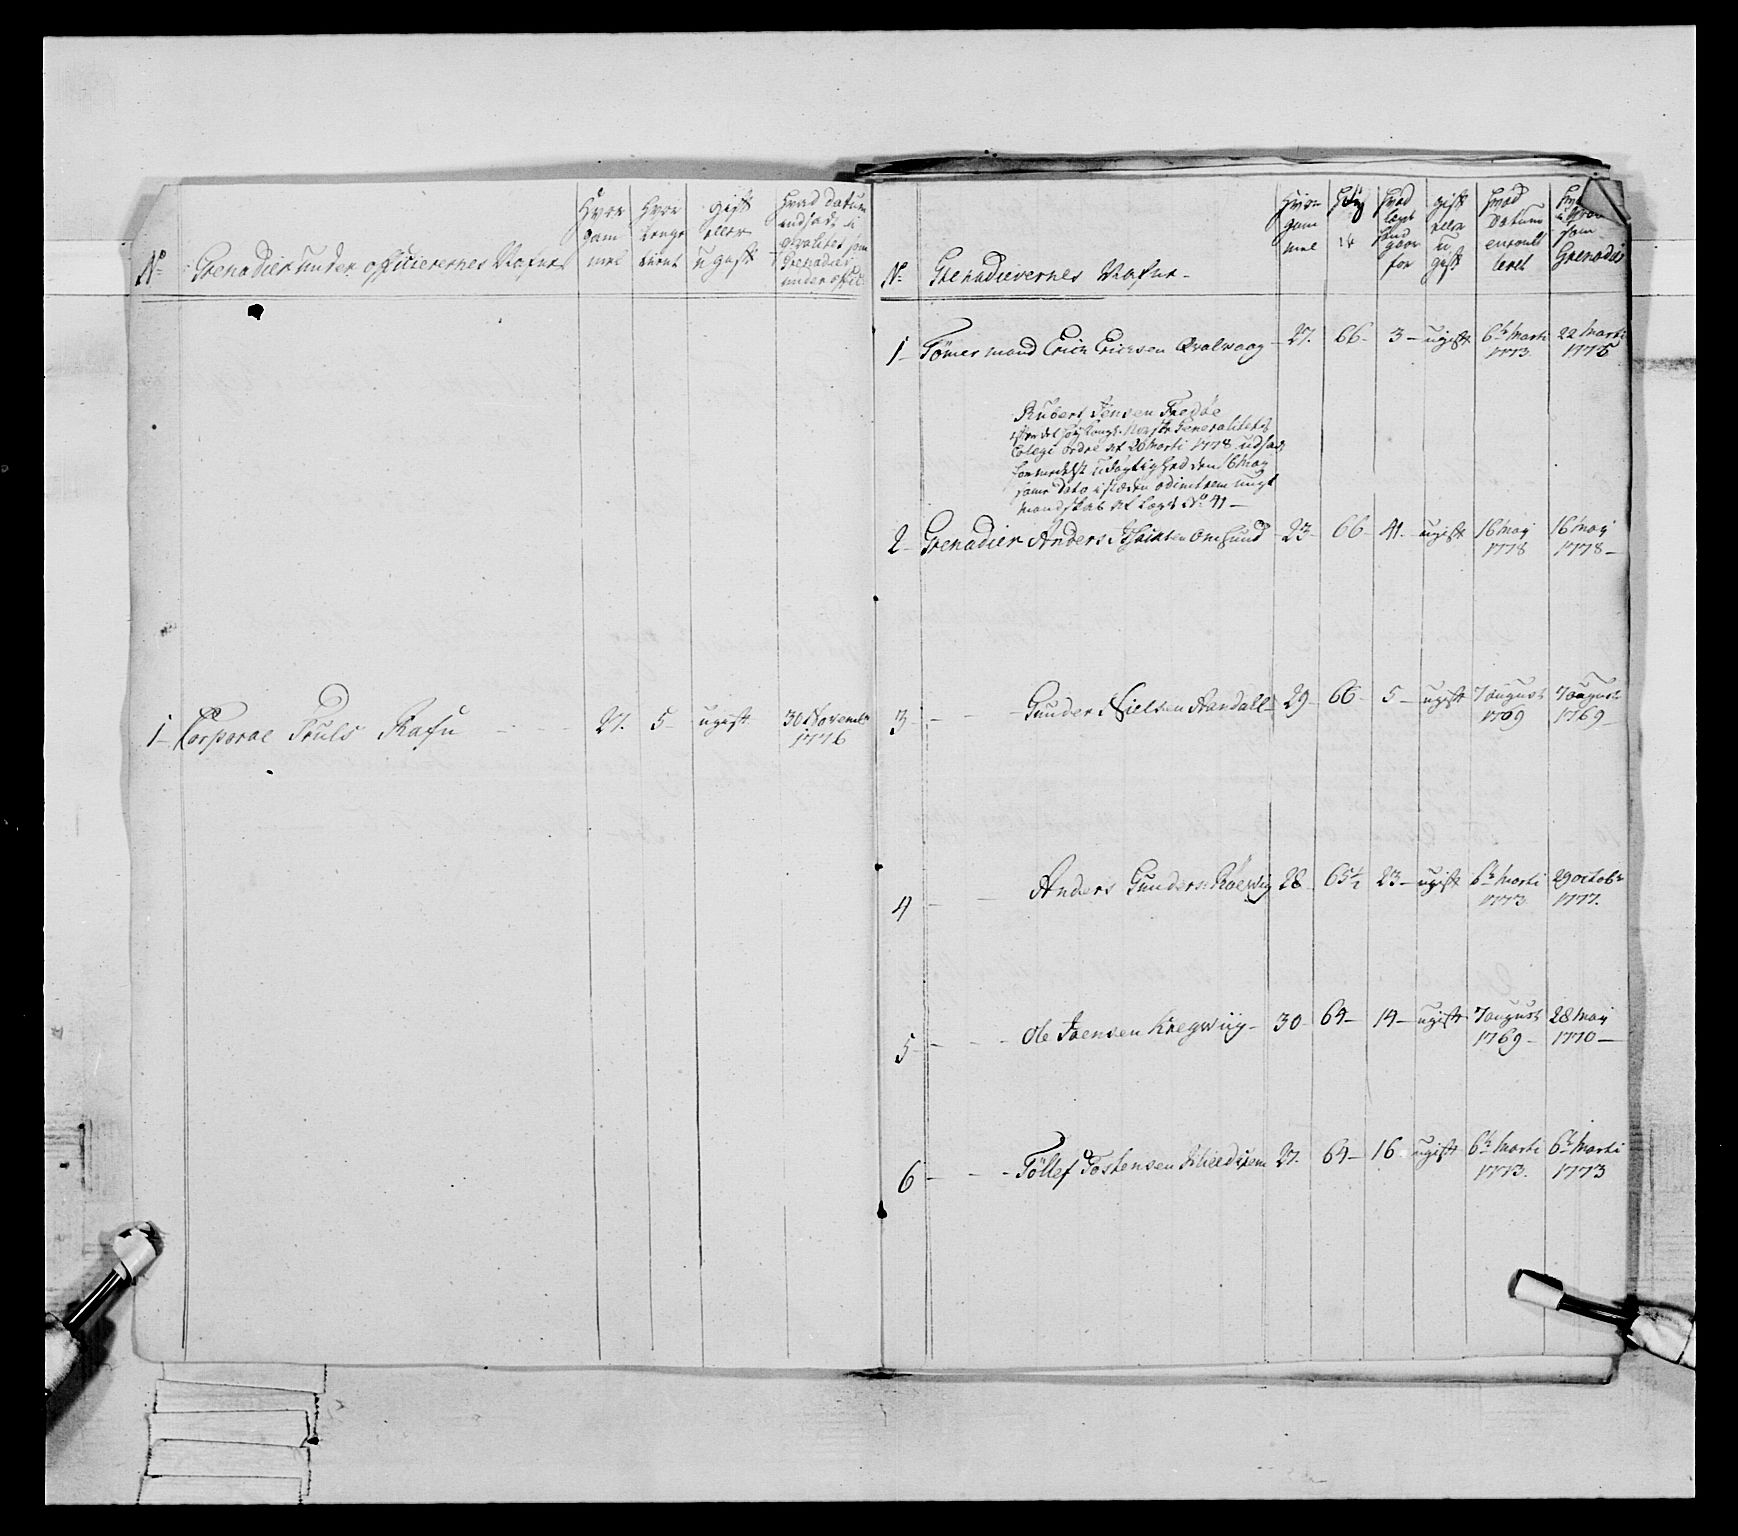 No Grenadier under officierernes Nafne
Hvor gammel
Hvor lenge tient
gift eller ugift
Hvad datum udsadt i qvalitet som Grenadeer under offic:
1 Corporal Truls Rafn 27. 5 ugift 30 Novembr 1776
No Grenadierernes Nafne
Hvor gammel
Høy
Hvad lægd Hand gaar for
gift eller ugift
Hvad Datum enroulleret
som Grenadeer
1 Tømermand Erich Erichsen Qvalvaag 27. 66 3 ugift 6te Marti 1773. 22 Marti 1775
Rubert Jensen Fredøe
efter det høy Kongl. Norske Generalitetes
Colegi ordre af 20 Marti 1778 udsadt
formedelst udøgtighed den 16 May
samme Dato i stæden
mandskab af Lægd No 41
2 Grenadier Anders Omsund 23 66 41 ugift 16 May 1778 16 May 1778
3 Gunder Nielsen Aandall 29 66 5 ugift 7 august 1769 7 august 1769
4 Anders Gunders: Røewig 28 65½ 23 ugift 6te Marti 1773 29 octobr 1777.
5 Ole Joensen Kregwiig 30 64 14 ugift 7 august 1769 28 May 1770
6 Töllef Tostensen 27. 64 16 ugift 6te Marti 1773. 6te Marti 1773